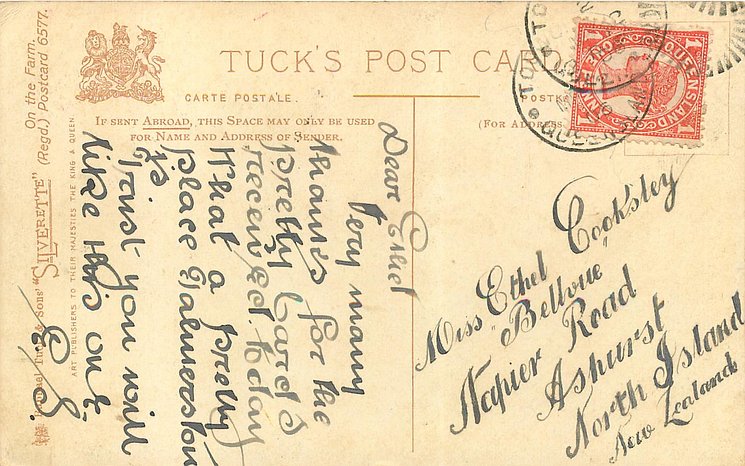 TUCK'S POST CARD
CARTE POSTALE.
IF SENT ABROAD, THIS SPACE MAY ONLY BE USED
FOR NAME AND ADDRESS OF SENDER.
(FOR ADDRESS
QUEENSLAND
ONE PENNY
1 1
Raphael Tuck & Sons' "SILVERETTE"
(Regd.) Postcard 6577.
On the Farm.
ART PUBLISHERS TO THEIR MAJESTIES THE KING & QUEEN
Dear Ethel
Very many
thanks for the
pretty Card I
received today
What a pretty
place Palmerston
is.
Trust you will
like this one.
Miss Ethel Cooksley
"Bellvue"
Napier Road
Ashurst
North Island
New Zealand